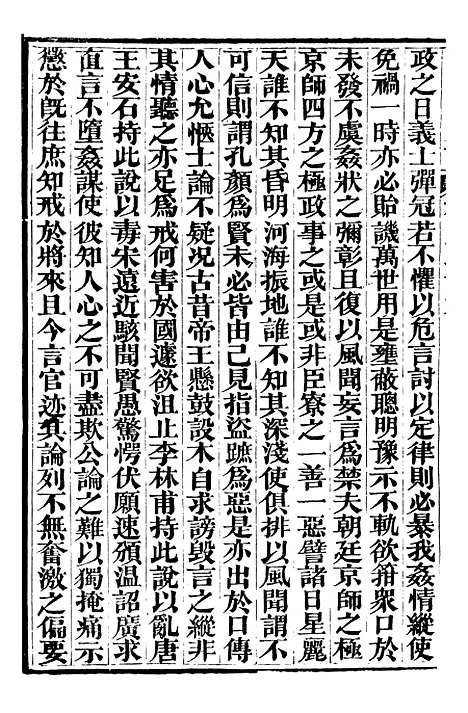 政之日義士彈冠若不懼以危言討以定律則必暴我姦情縱使
免禍一時亦必貽譏萬世用是壅蔽聰明豫示不軌欲箝衆口於
未發不虞姦狀之彌彰且復以風聞妄言爲禁夫朝廷京師之極
京師四方之極政事之或是或非臣寮之一善一惡譬諸日星麗
天誰不知其昏明河海振地誰不知其深淺使俱排以風聞謂不
可信則謂孔顏爲賢未必皆由己見指盜蹠爲惡是亦出於口傳
人心允愜士論不疑況古昔帝王懸鼓設木自求謗毀言之縱非
其情聽之亦足爲戒何害於國遽欲沮止李林甫持此說以亂唐
王安石持此說以毒宋遠近駭聞賢愚驚愕伏願速頒温詔廣求
直言不墮姦謀使彼知人心之不可盡欺公論之難以獨掩痛示
懲於旣往庶知戒於將來且今言官迹其論列不無奮激之偏要